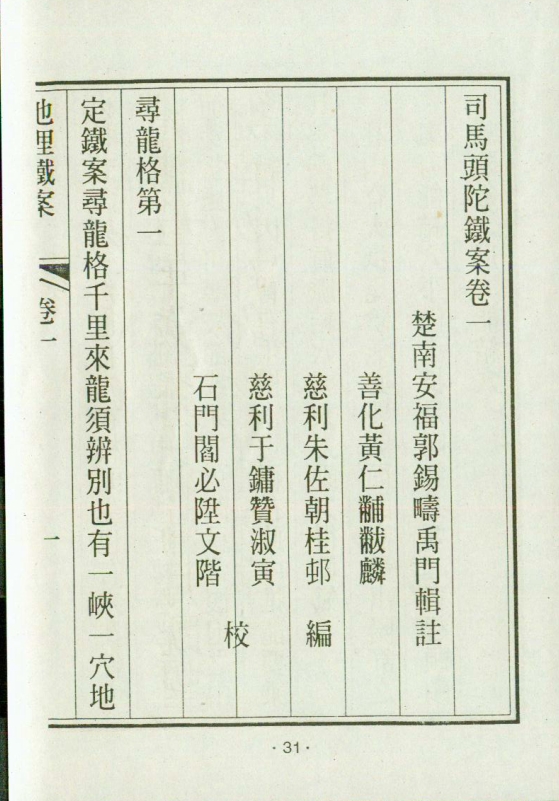 司馬頭陀鐵案卷一
楚南安福郭錫疇禹門輯註
善化黃仁黼黻麟
慈利朱佐朝桂邨 編
慈利于鏞贊淑寅
石門閻必陞文階 校
尋龍格第一
定鐵案尋龍格千里來龍須辨別也有一峽一穴地
地理鐵案 卷一 一
·31·